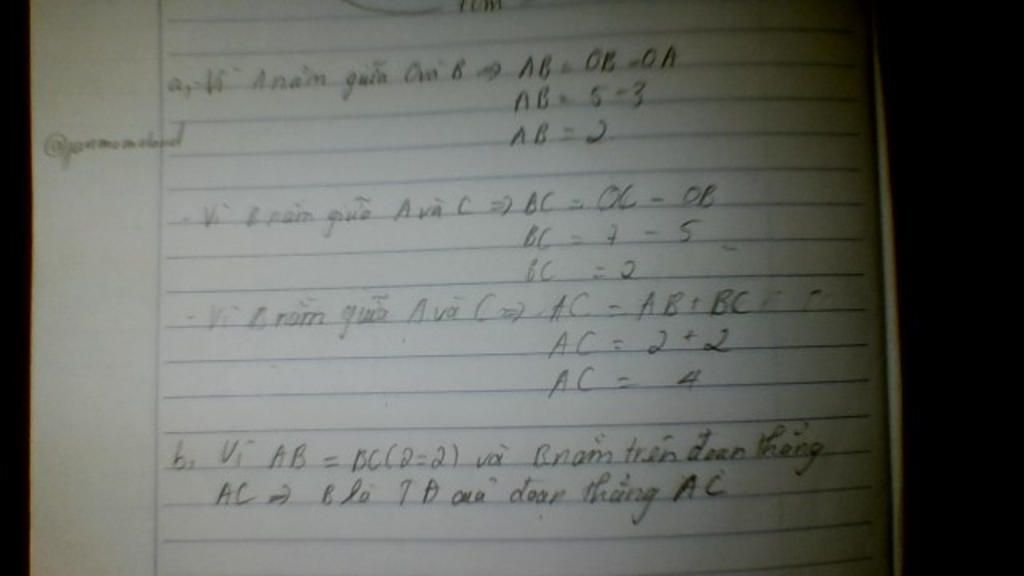 7cm
a, - Vì A nằm giữa O và B => AB = OB - OA
AB = 5 - 3
AB = 2
- Vì B nằm giữa A và C => BC = OC - OB
BC = 7 - 5
BC = 2
- Vì B nằm giữa A và C => AC = AB + BC
AC = 2 + 2
AC = 4
b, Vì AB = BC (2=2) và B nằm trên đoạn thẳng
AC => B là TĐ của đoạn thẳng AC